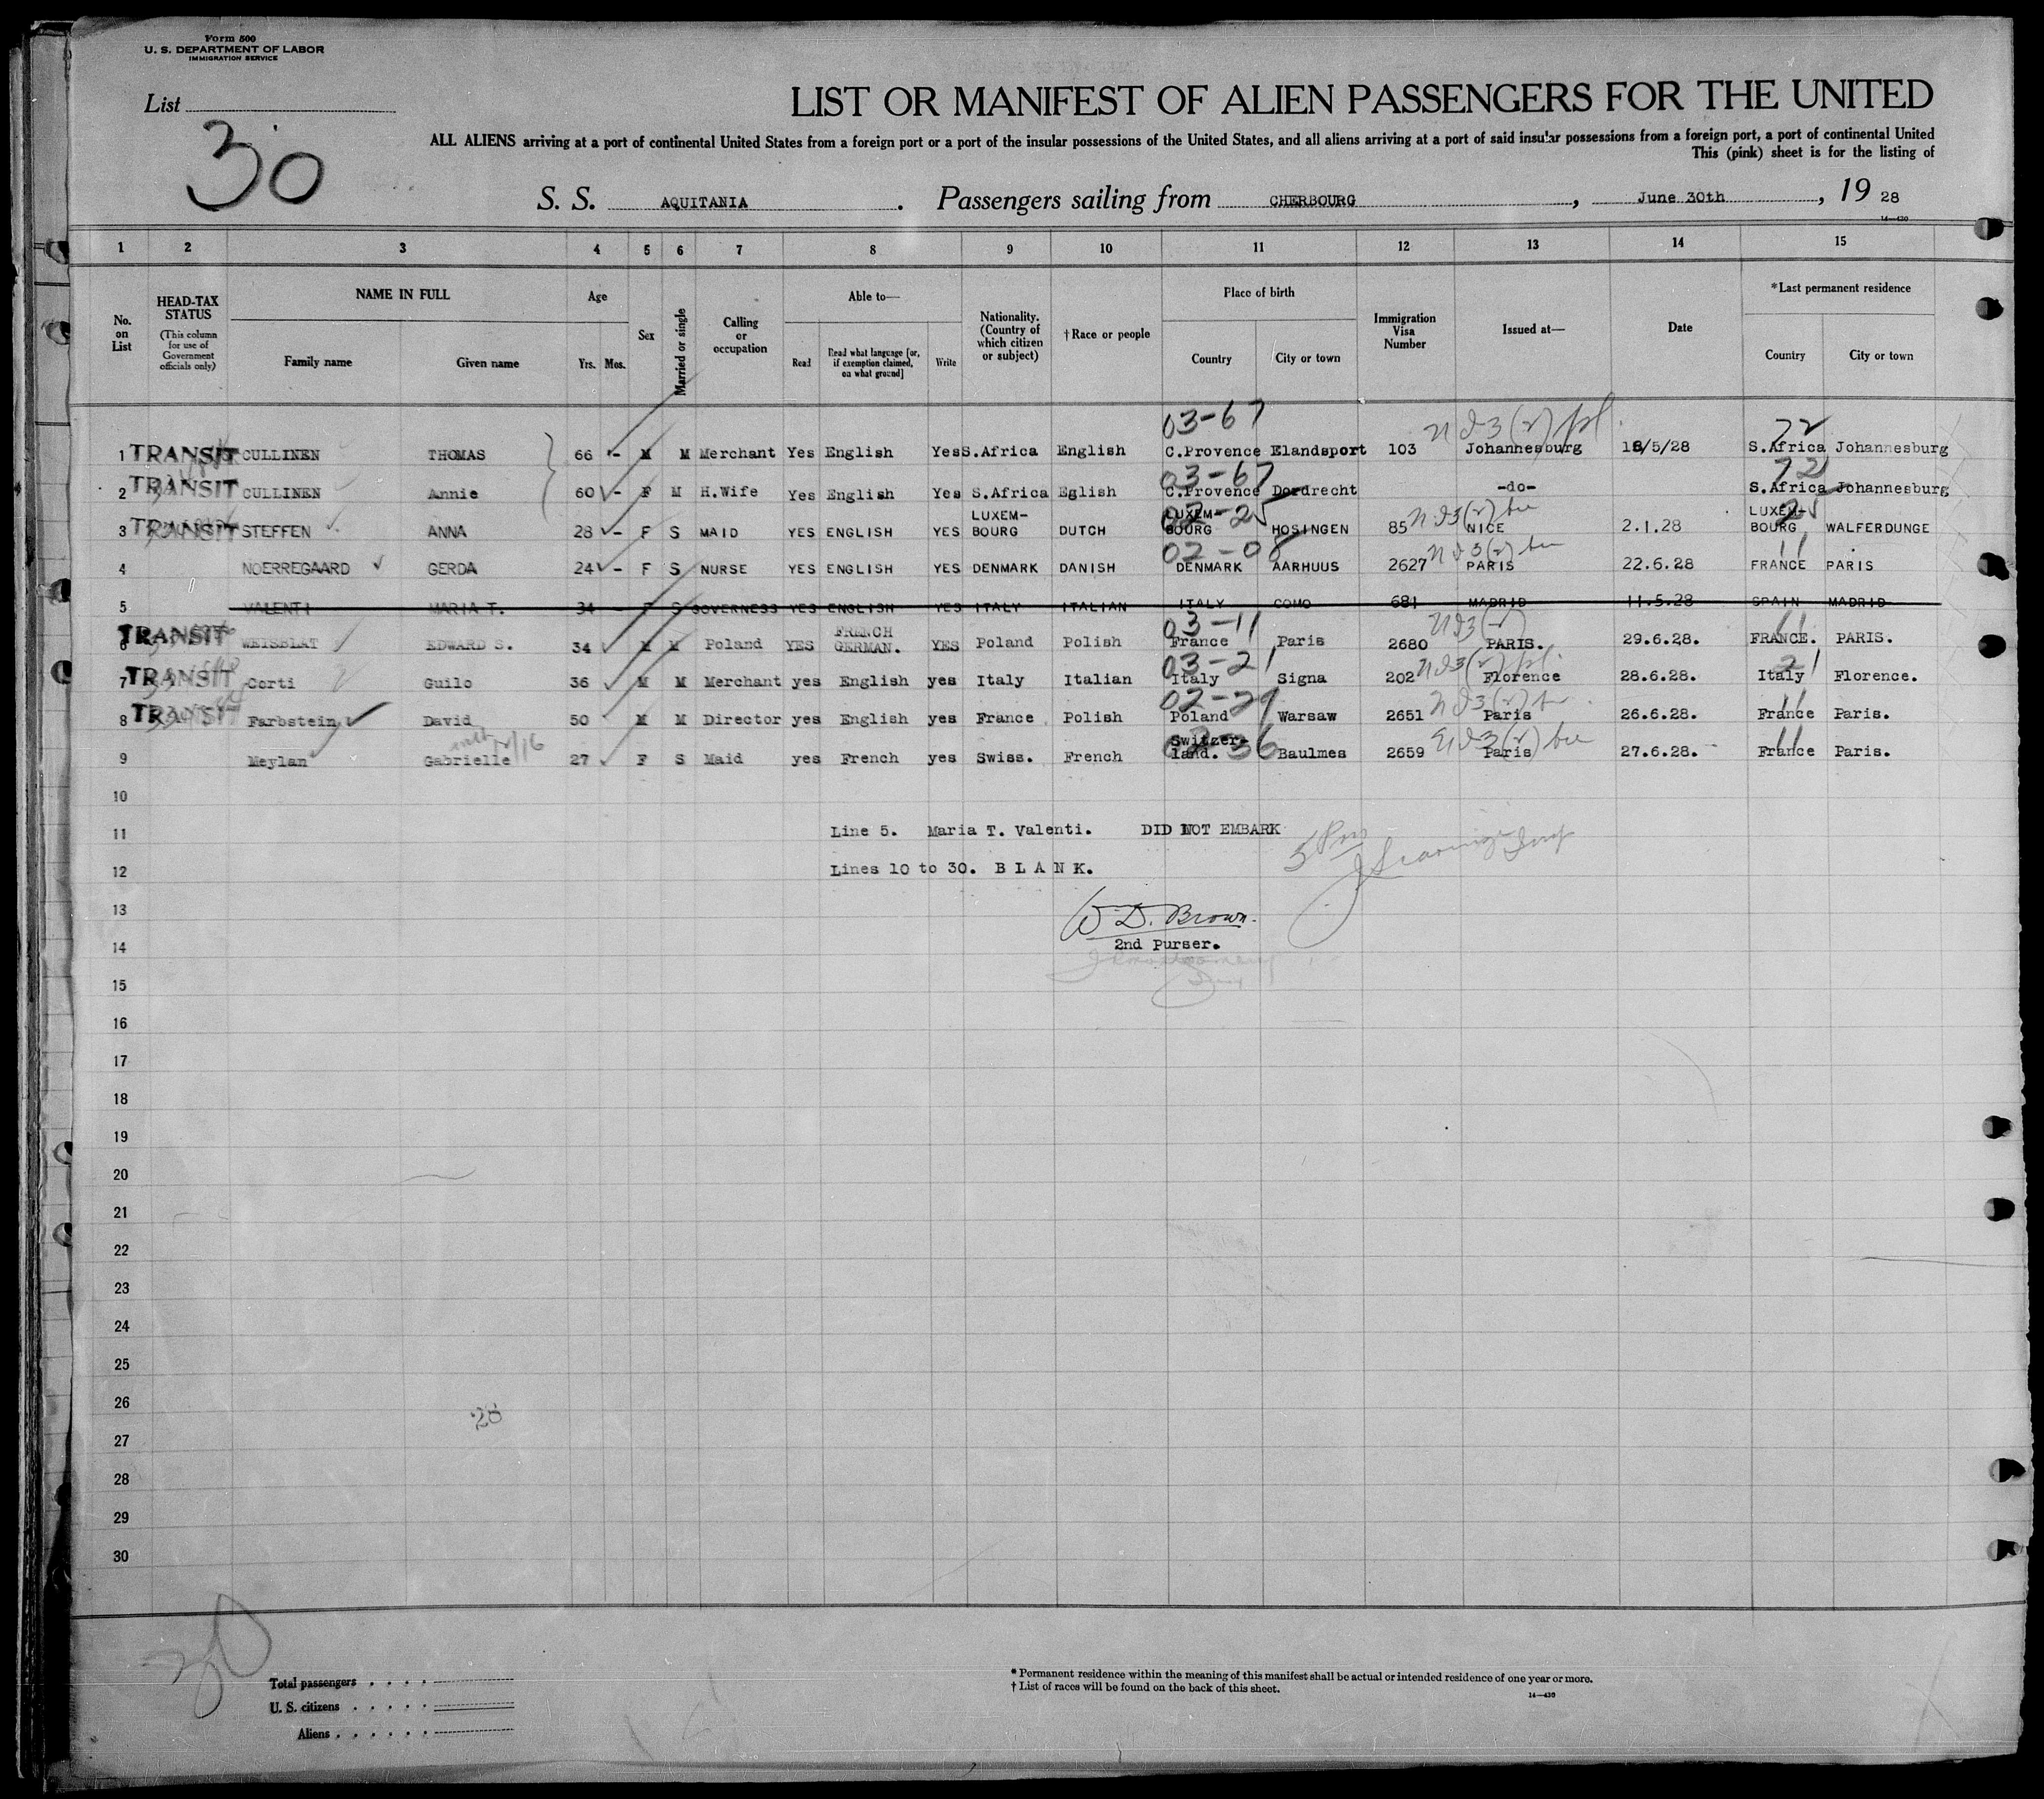 Form 500
U. S. DEPARTMENT OF LABOR
IMMIGRATION SERVICE
List
30
LIST OR MANIFEST OF ALIEN PASSENGERS FOR THE UNITED
ALL ALIENS arriving at a port of continental United States from a foreign port or a port of the insular possessions of the United States, and all aliens arriving at a port of said insular possessions from a foreign port, a port of continental United
This (pink) sheet is for the listing of
S. S. AQUITANIA. Passengers sailing from CHERBOURG, June 30th, 19 28
14—430
1 2 3 4 5 6 7 8 9 10 11 12 13 14 15
No. on List
HEAD-TAX STATUS (This column for use of Government officials only)
NAME IN FULL
Family name Given name
Age Yrs. Mos.
Sex
Married or single
Calling or occupation
Able to—
Read Read what language [or, if exemption claimed, on what ground] Write
Nationality. (Country of which citizen or subject)
†Race or people
Place of birth
Country City or town
Immigration Visa Number
Issued at—
Date
*Last permanent residence
Country City or town
03-67 72
1 TRANSIT CULLINEN THOMAS 66 - M M Merchant Yes English Yes S.Africa English C.Provence Elandsport 103 Johannesburg 18/5/28 S.Africa Johannesburg
03-67 72
2 TRANSIT CULLINEN Annie 60 - F M H.Wife Yes English Yes S.Africa Eglish C.Provence Dordrecht -do- S.Africa Johannesburg
02-25 25
3 TRANSIT STEFFEN ANNA 28 - F S MAID YES ENGLISH YES LUXEM-BOURG DUTCH LUXEM-BOURG HOSINGEN 85 NICE 2.1.28 LUXEM-BOURG WALFERDUNGE
02-08 11
4 NOERREGAARD GERDA 24 - F S NURSE YES ENGLISH YES DENMARK DANISH DENMARK AARHUUS 2627 PARIS 22.6.28 FRANCE PARIS
5 VALENTI MARIA T. 34 - F S GOVERNESS YES ENGLISH YES ITALY ITALIAN ITALY COMO 681 MADRID 11.5.28 SPAIN MADRID
03-11 11
6 TRANSIT WEISBLAT EDWARD S. 34 M M Poland YES FRENCH GERMAN. YES Poland Polish France Paris 2680 PARIS. 29.6.28. FRANCE. PARIS.
03-21 21
7 TRANSIT Corti Guilo 36 M M Merchant yes English yes Italy Italian Italy Signa 202 Florence 28.6.28. Italy Florence.
02-29 11
8 TRANSIT Farbstein David 50 M M Director yes English yes France Polish Poland Warsaw 2651 Paris 26.6.28. France Paris.
36 11
9 Meylan Gabrielle 27 F S Maid yes French yes Swiss. French Switzer-land. Baulmes 2659 Paris 27.6.28. France Paris.
10
11 Line 5. Maria T. Valenti. DID NOT EMBARK
12 Lines 10 to 30. B L A N K.
13 W D. Brown.
14 2nd Purser.
15
16
17
18
19
20
21
22
23
24
25
26
28
27
28
29
30
Total passengers
U. S. citizens
Aliens
* Permanent residence within the meaning of this manifest shall be actual or intended residence of one year or more.
† List of races will be found on the back of this sheet.
14—430